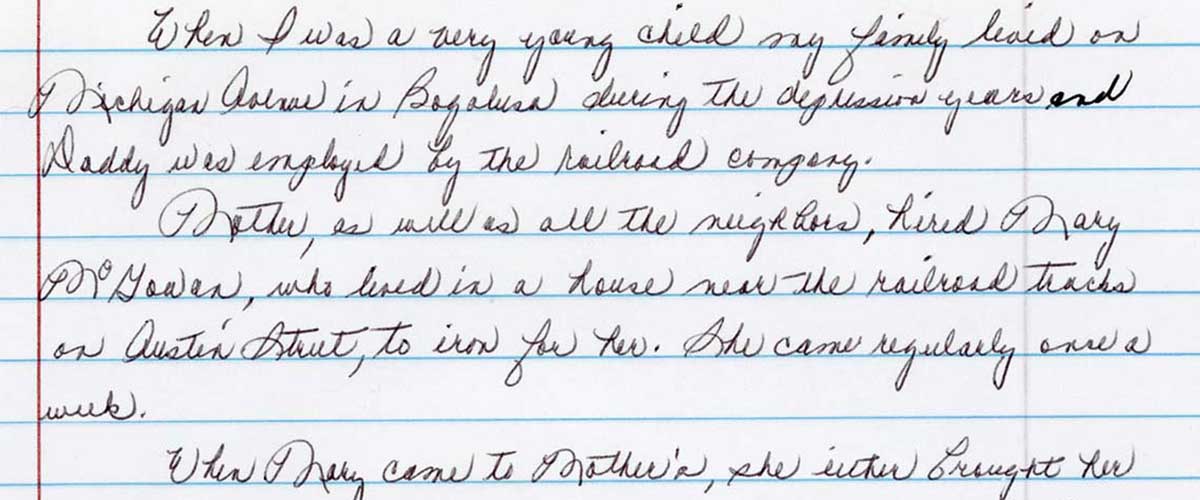 When I was a very young child my family lived on
Michigan Avenue in Bogalusa during the depression years and
Daddy was employed by the railroad company.
Mother, as well as all the neighbors, hired Mary
McGowan, who lived in a house near the railroad tracks
on Austin Street, to iron for her. She came regularly once a
week.
When Mary came to Mother's, she either brought her